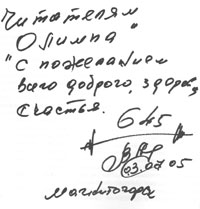 Читателям
"Олимпа"
с пожеланием
всего доброго, здоровья,
счастья.
645
03.07.05
Магнитогорск